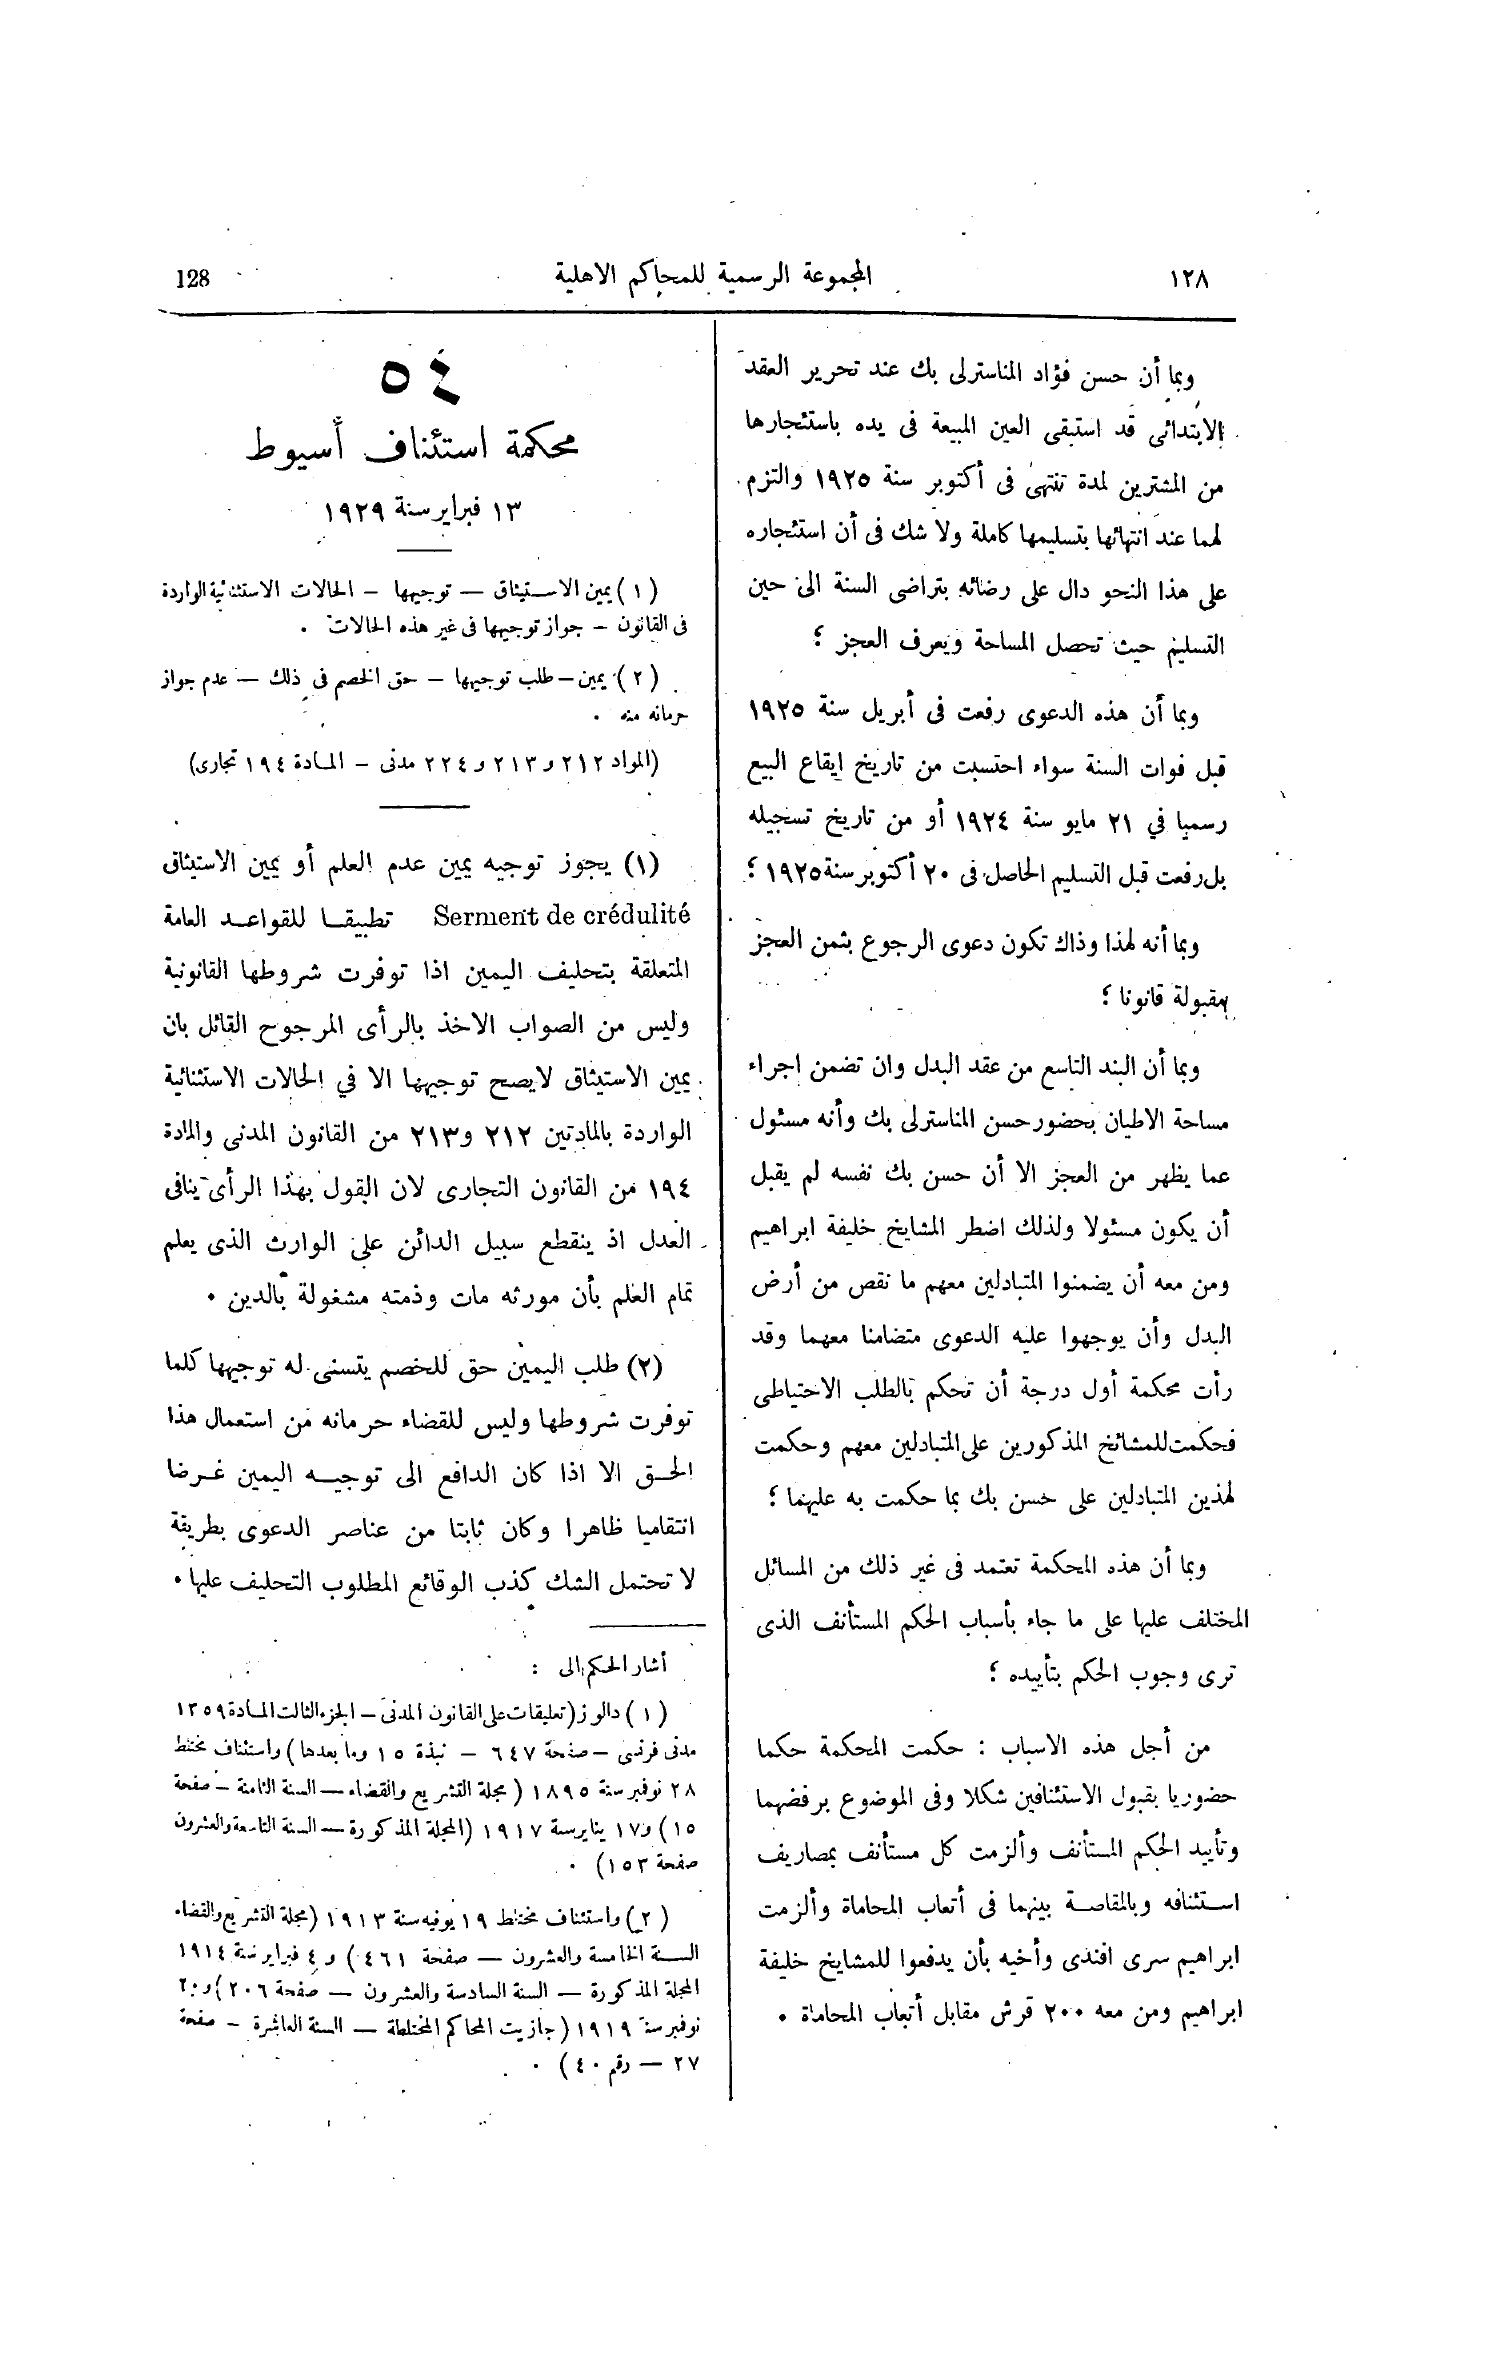 ١٢٨
المجموعة الرسمية للمحاكم الاهلية
128
وبما أن حسن فؤاد المناسترلى بك عند تحرير العقد
الابتدائى قد استبقى العين المبيعة فى يده باستئجارها
من المشترين لمدة تنتهى فى أكتوبر سنة ١٩٢٥ والتزم
لهما عند انتهائها بتسليمها كاملة ولا شك فى أن استئجاره
على هذا النحو دال على رضائه بتراضى السنة الى حين
التسليم حيث تحصل المساحة ويعرف العجز ؛
وبما أن هذه الدعوى رفعت فى أبريل سنة ١٩٢٥
قبل فوات السنة سواء احتسبت من تاريخ إيقاع البيع
رسميا في ٢١ مايو سنة ١٩٢٤ أو من تاريخ تسجيله
بل رفعت قبل التسليم الحاصل فى ٢٠ أكتوبر سنة ١٩٢٥ ؛
وبما أنه لهذا وذاك تكون دعوى الرجوع بثمن العجز
مقبولة قانونا ؛
وبما أن البند التاسع من عقد البدل وان تضمن اجراء
مساحة الاطيان بحضور حسن المناسترلى بك وأنه مسئول
عما يظهر من العجز الا أن حسن بك نفسه لم يقبل
أن يكون مسئولا ولذلك اضطر المشايخ خليفة ابراهيم
ومن معه أن يضمنوا المتبادلين معهم ما نقص من أرض
البدل وأن يوجهوا عليه الدعوى متضامنا معهما وقد
رأت محكمة أول درجة أن تحكم بالطلب الاحتياطى
فحكمت للمشائخ المذكورين على المتبادلين معهم وحكمت
لهذين المتبادلين على حسن بك بما حكمت به عليهما ؛
وبما أن هذه المحكمة تعتمد فى غير ذلك من المسائل
المختلف عليها على ما جاء بأسباب الحكم المستأنف الذى
ترى وجوب الحكم بتأييده ؛
من أجل هذه الاسباب : حكمت المحكمة حكما
حضوريا بقبول الاستئنافين شكلا وفى الموضوع برفضهما
وتأييد الحكم المستأنف وألزمت كل مستأنف بمصاريف
استئنافه وبالمقاصة بينهما فى أتعاب المحاماة وألزمت
ابراهيم سرى افندى وأخيه بأن يدفعوا للمشايخ خليفة
ابراهيم ومن معه ٢٠٠ قرش مقابل أتعاب المحاماة .
٥٤
محكمة استئناف أسيوط
١٣ فبراير سنة ١٩٢٩
(١) يمين الاستيثاق — توجيهها — الحالات الاستثنائية الواردة
فى القانون — جواز توجيهها فى غير هذه الحالات .
(٢) يمين — طلب توجيهها — حق الخصم فى ذلك — عدم جواز
حرمانه منه .
(المواد ٢١٢ و ٢١٣ و ٢٢٤ مدنى — المادة ١٩٤ تجارى)
(١) يجوز توجيه يمين عدم العلم أو يمين الاستيثاق
Serment de crédulité تطبيقا للقواعد العامة
المتعلقة بتحليف اليمين اذا توفرت شروطها القانونية
وليس من الصواب الاخذ بالرأى المرجوح القائل بان
يمين الاستيثاق لايصح توجيهها الا في الحالات الاستثنائية
الواردة بالمادتين ٢١٢ و٢١٣ من القانون المدنى والمادة
١٩٤ من القانون التجارى لان القول بهذا الرأى ينافى
العدل اذ ينقطع سبيل الدائن على الوارث الذى يعلم
تمام العلم بأن مورثه مات وذمته مشغولة بالدين .
(٢) طلب اليمين حق للخصم يتسنى له توجيهها كلما
توفرت شروطها وليس للقضاء حرمانه من استعمال هذا
الحق الا اذا كان الدافع الى توجيه اليمين غرضا
انتقاميا ظاهرا وكان ثابتا من عناصر الدعوى بطريقة
لا تحتمل الشك كذب الوقائع المطلوب التحليف عليها .
أشار الحكم الى :
(١) دالوز (تعليقات على القانون المدنى — الجزء الثالث المادة ١٣٥٩
مدنى فرنسى — صفحة ٦٤٧ — نبذة ١٥ وما بعدها) واستئناف مختلط
٢٨ نوفبر سنة ١٨٩٥ (مجلة التشريع والقضاء — السنة الثامنة — صفحة
١٥) و١٧ يناير سنة ١٩١٧ (المجلة المذكورة — السنة التاسعة والعشرون
صفحة ١٥٣) .
(٢) واستئناف مختلط ١٩ يونيه سنة ١٩١٣ (مجلة التشريع والقضاء
السنة الخامسة والعشرون — صفحة ٤٦١) و ٤ فبراير سنة ١٩١٤
المجلة المذكورة — السنة السادسة والعشرون — صفحة ٢٠٦) و٢٠
نوفبر سنة ١٩١٩ (جازيت المحاكم المختلطة — السنة العاشرة — صفحة
٢٧ — رقم ٤٠) .